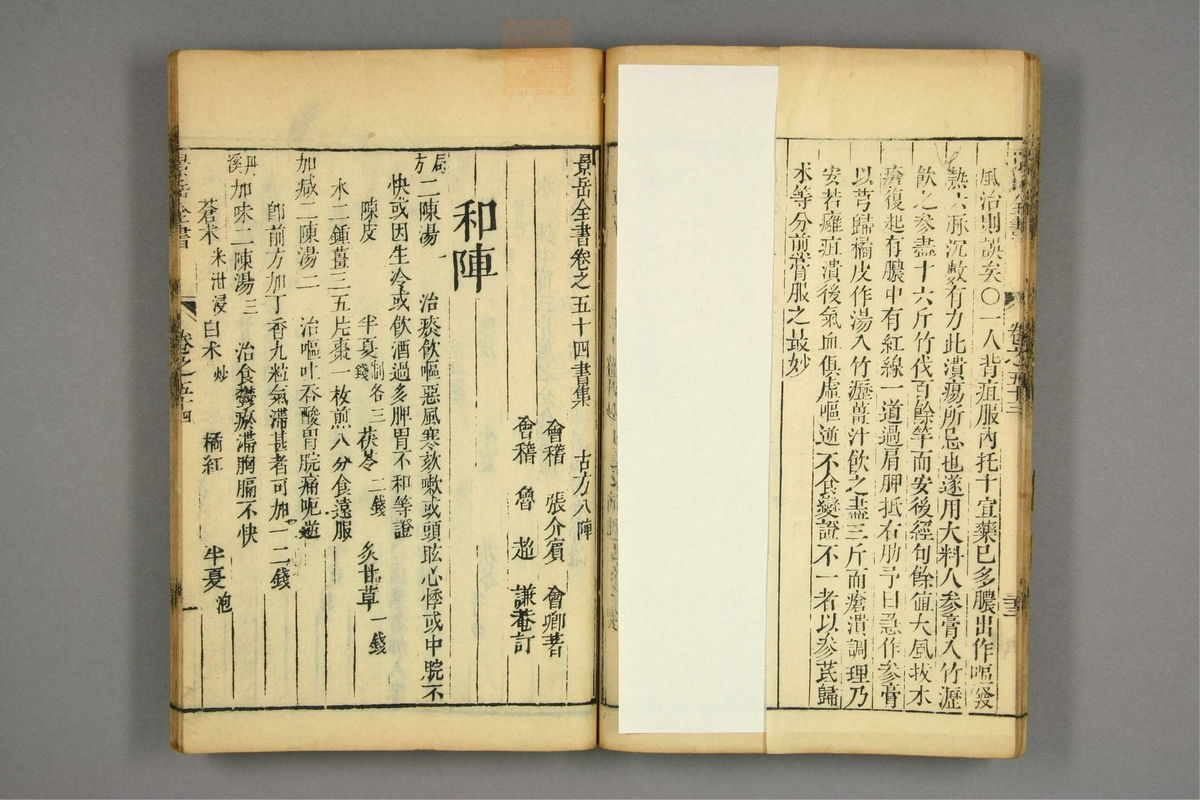 風治則誤矣〇一人背疽服內托十宣藥已多膿出作嘔發
熱六脉沉數有力此潰瘍所忌也遂用大料人參膏入竹瀝
飲之參盡十六斤竹伐百餘竿而安後經旬餘值大風拔木
瘡復起有膿中有紅線一道過肩胛抵右肋予曰急作參膏
以芎歸橘皮作湯入竹瀝薑汁飲之盡三斤而瘡潰調理乃
安若癰疽潰後氣血俱虛嘔逆不食變證不一者以參芪歸
术等分煎膏服之最妙
卷之五十三
景岳全書卷之五十四書集 古方八陣
會稽 張介賓 會卿著
會稽 魯超 謙菴訂
和陣
局方二陳湯一 治痰飲嘔惡風寒欬嗽或頭眩心悸或中脘不
快或因生冷或飲酒過多脾胃不和等證
陳皮 半夏制各三錢 茯苓二錢 炙甘草一錢
水二鍾薑三五片棗一枚煎八分食遠服
加減二陳湯二 治嘔吐吞酸胃脘痛呃逆
即前方加丁香九粒氣滯甚者可加一二錢
丹溪加味二陳湯三 治食鬱痰滯胸膈不快
蒼术米泔浸 白术炒 橘紅 半夏泡
景岳全書 卷之五十四 一